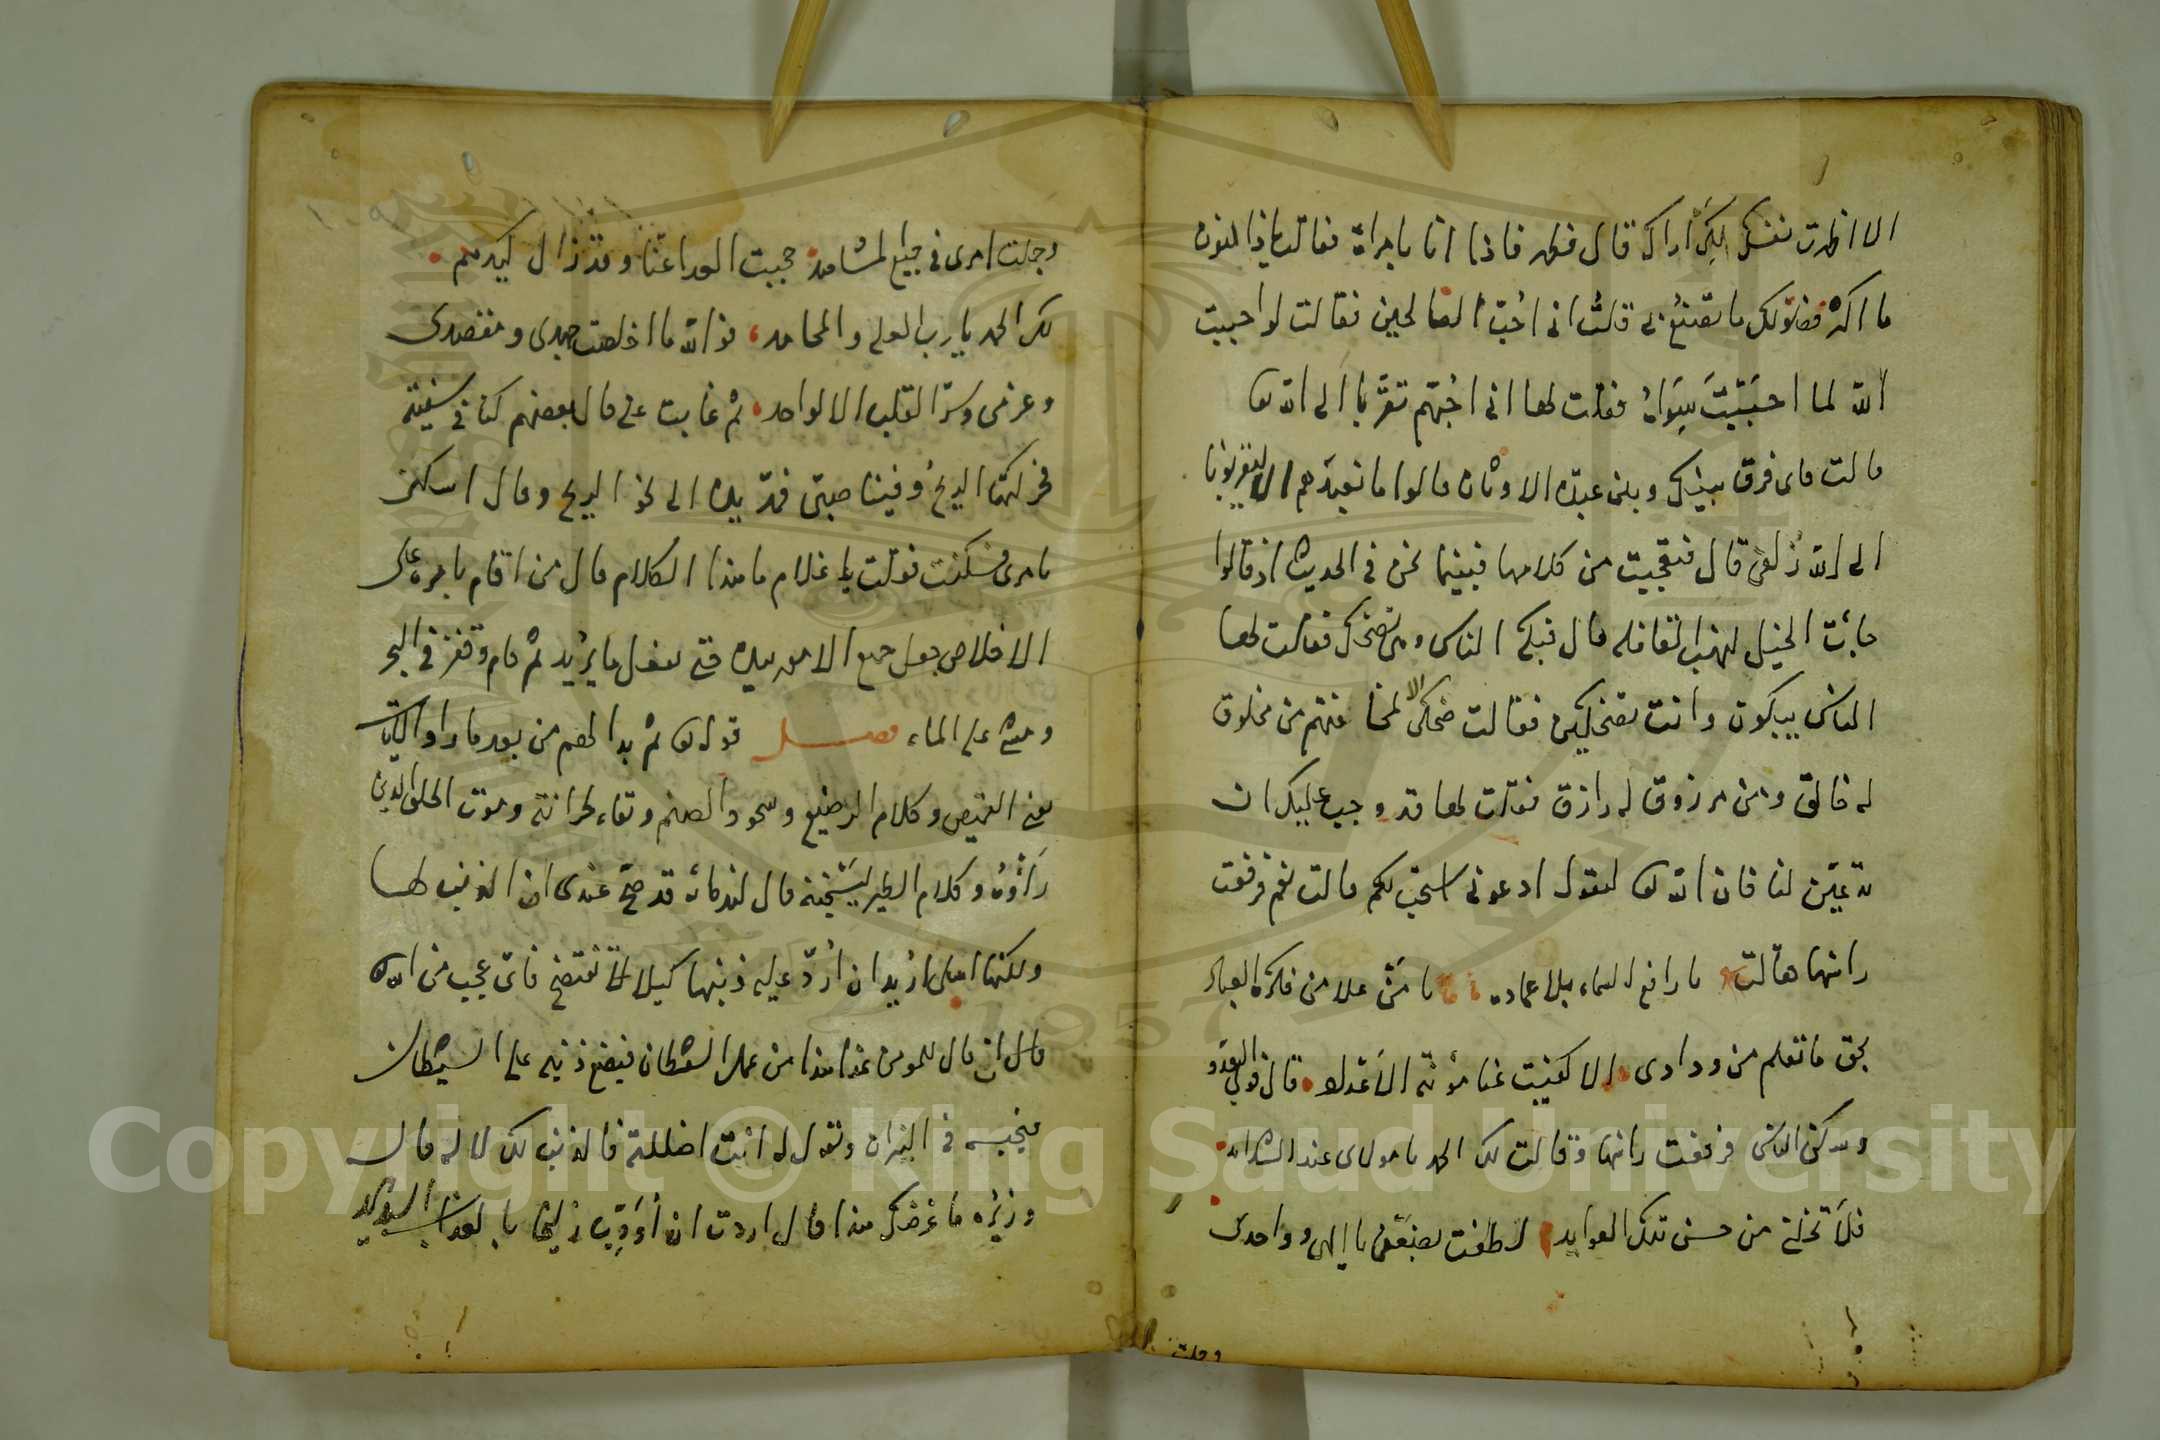 الا اظهرت نفسك لكى اراك قال فظهر فاذا انا بامراة فقالت ياذا النون
ما اكثر فضولك ما تصنع بى قلت انى احب الصالحين فقالت لو احببت
الله لما احببت سواه فقلت لها انى احبهم تقربا الى الله تعا
قالت فاى فرق بينك وبين عبدة الاوثان قالوا ما نعبدهم الا ليقربونا
الى الله زلفى قال فتعجبت من كلامها فبينما نحن فى الحديث اذ قالوا
جاءت الخيل لنهب القافله قال فبكى الناس وهى تضحك فقالت لها
الناس يبكون وانت تضحكين فقالت ضحكى لمخافتهم من مخلوق
له خالق ومن مرزوق له رازق فقلت لها قد وجب عليك ان
تدعين لنا فان الله تعا يقول ادعونى استجب لكم قالت نعم فرفعت
راسها فقالت يا رافع السماء بلا عماد يا من علا من فكرة العباد
بحق ما تعلم من ودادى الا كفيت عنا مؤنة الاعداء قال فولى العدو
وسكن الناس فرفعت راسها وقالت لك الحمد يا مولاى عند الشدائد
فلا تخلنى من حسن تلك العوايد لاطفت بضعفى يا الهى وواحدى
وجلت
وجملت امرى فى جميع المشاهد حجبت العدا عنا وقد زال كيدهم
لك الحمد يا رب العلى والمحامد فوالله ما اخلصت جهدى ومقصدى
وعزمى وسر القلب الا لواحد ثم غابت عنى قال بعضهم كنا فى سفينة
فحركتها الريح وفينا صبى فمد يده الى نحو الريح وقال اسكنى
يا مرى فسكنت فقلت يا غلام ما هذا الكلام قال من اقام بامره على
الاخلاص جعل جميع الامور بيده حتى يفعل ما يريد ثم قام وقفز فى البحر
ومشى على الماء فصل قوله تعا ثم بدا لهم من بعد ما راوا الايات
يعنى القميص وكلام الرضيع وسجود الصنم وبقاء خزانته وموت الخلق الذين
رأوه وكلام الطير ليسجننه قال لندمائه قد صح عندى ان الذنب لها
ولكنها اهلى اريد ان ارد عليه ذنبها كيلا تفتضح فاى عجب من الله
تعالى ان قال للمومن غدا هذا من عمل الشيطان فيضع ذنبه على الشيطان
فيحبسه فى النيران ويقول له انت اضللته فالذنب لك لا له قال
وزيره ما غرضك هذا قال اردت ان اؤدب زليخا بالعذاب الشديد
Copyright © King Saud University
1957